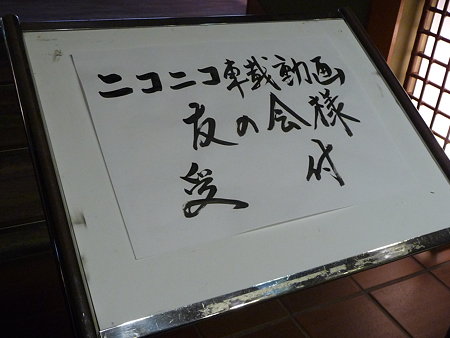 ニコニコ車載動画
友の会様
受付